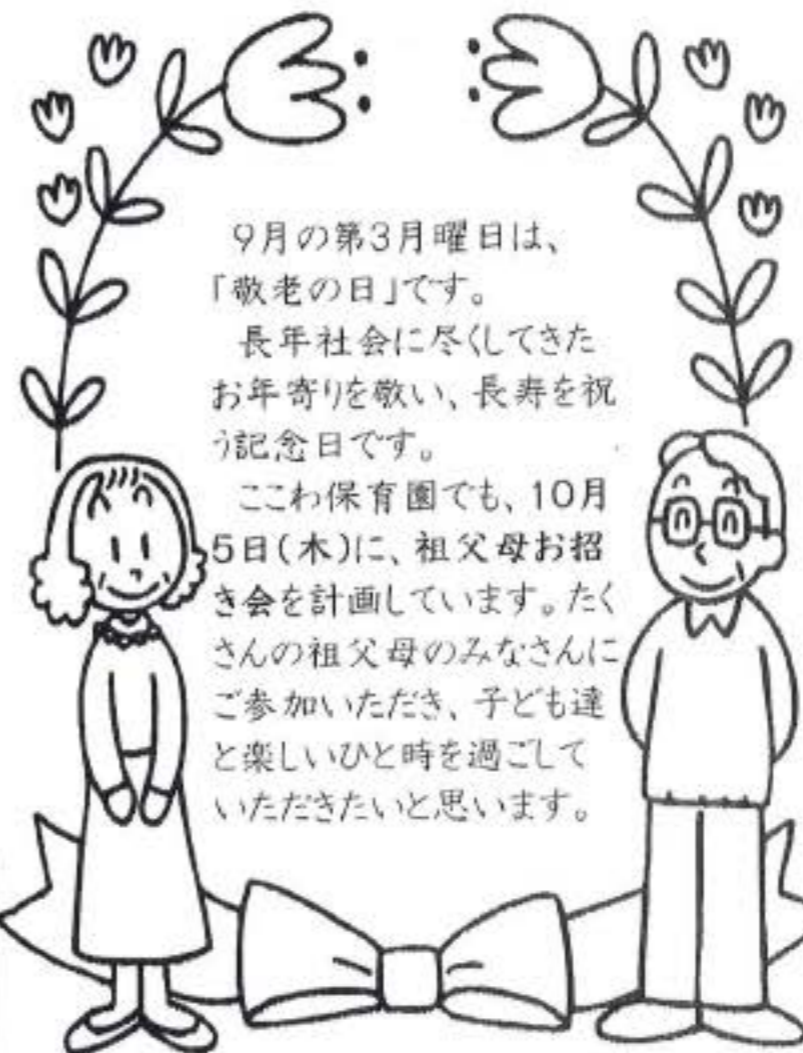 9月の第3月曜日は、
「敬老の日」です。
長年社会に尽くしてきた
お年寄りを敬い、長寿を祝
う記念日です。
ここわ保育園でも、10月
5日(木)に、祖父母お招
き会を計画しています。たく
さんの祖父母のみなさんに
ご参加いただき、子ども達
と楽しいひと時を過ごして
いただきたいと思います。